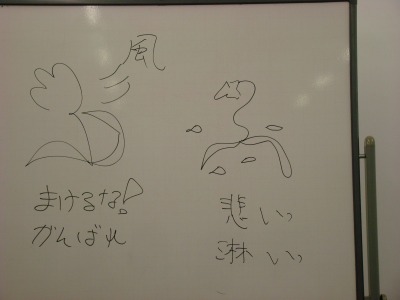 風
まけるな!
がんばれ
悲いっ
淋いっ